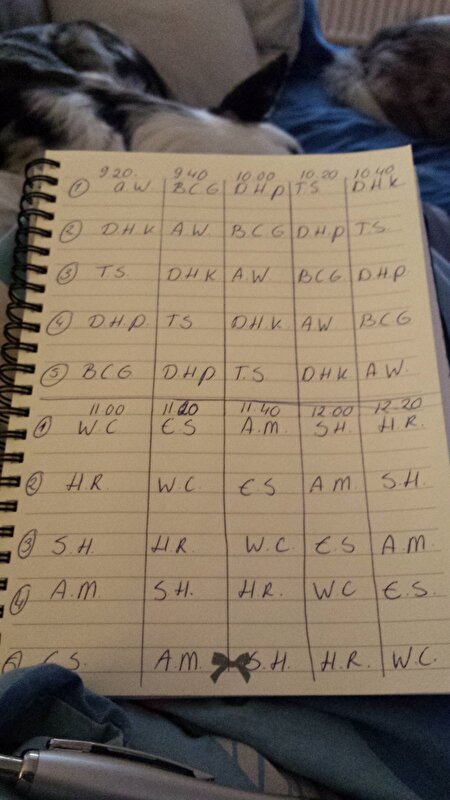 9.20 9.40 10.00 10.20 10.40
① A W BCG DHP TS DHK
② D.H.K A.W BCG DHP TS.
③ TS. DHK A.W BCG DHP
④ D.H.P. TS DHK AW BCG
⑤ BCG DHP T.S DHK A W.
11.00 11.20 11.40 12.00 12.20
① W C ES A.M. S.H. H.R.
② H R. W.C. ES A M. S.H.
③ S.H. H.R. W.C E.S A.M.
④ A.M. S.H. H.R. WC E.S.
S. A.M. S.H. H.R. W.C.